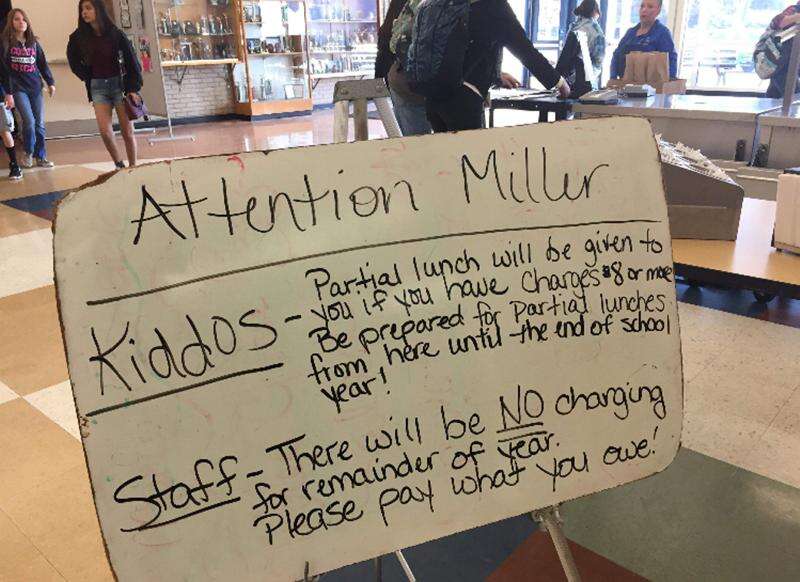 Attention Miller
Kiddos - Partial lunch will be given to
you if you have charges $8 or more
Be prepared for Partial lunches
from here until the end of school
year!
Staff - There will be NO charging
for remainder of year.
Please pay what you owe!